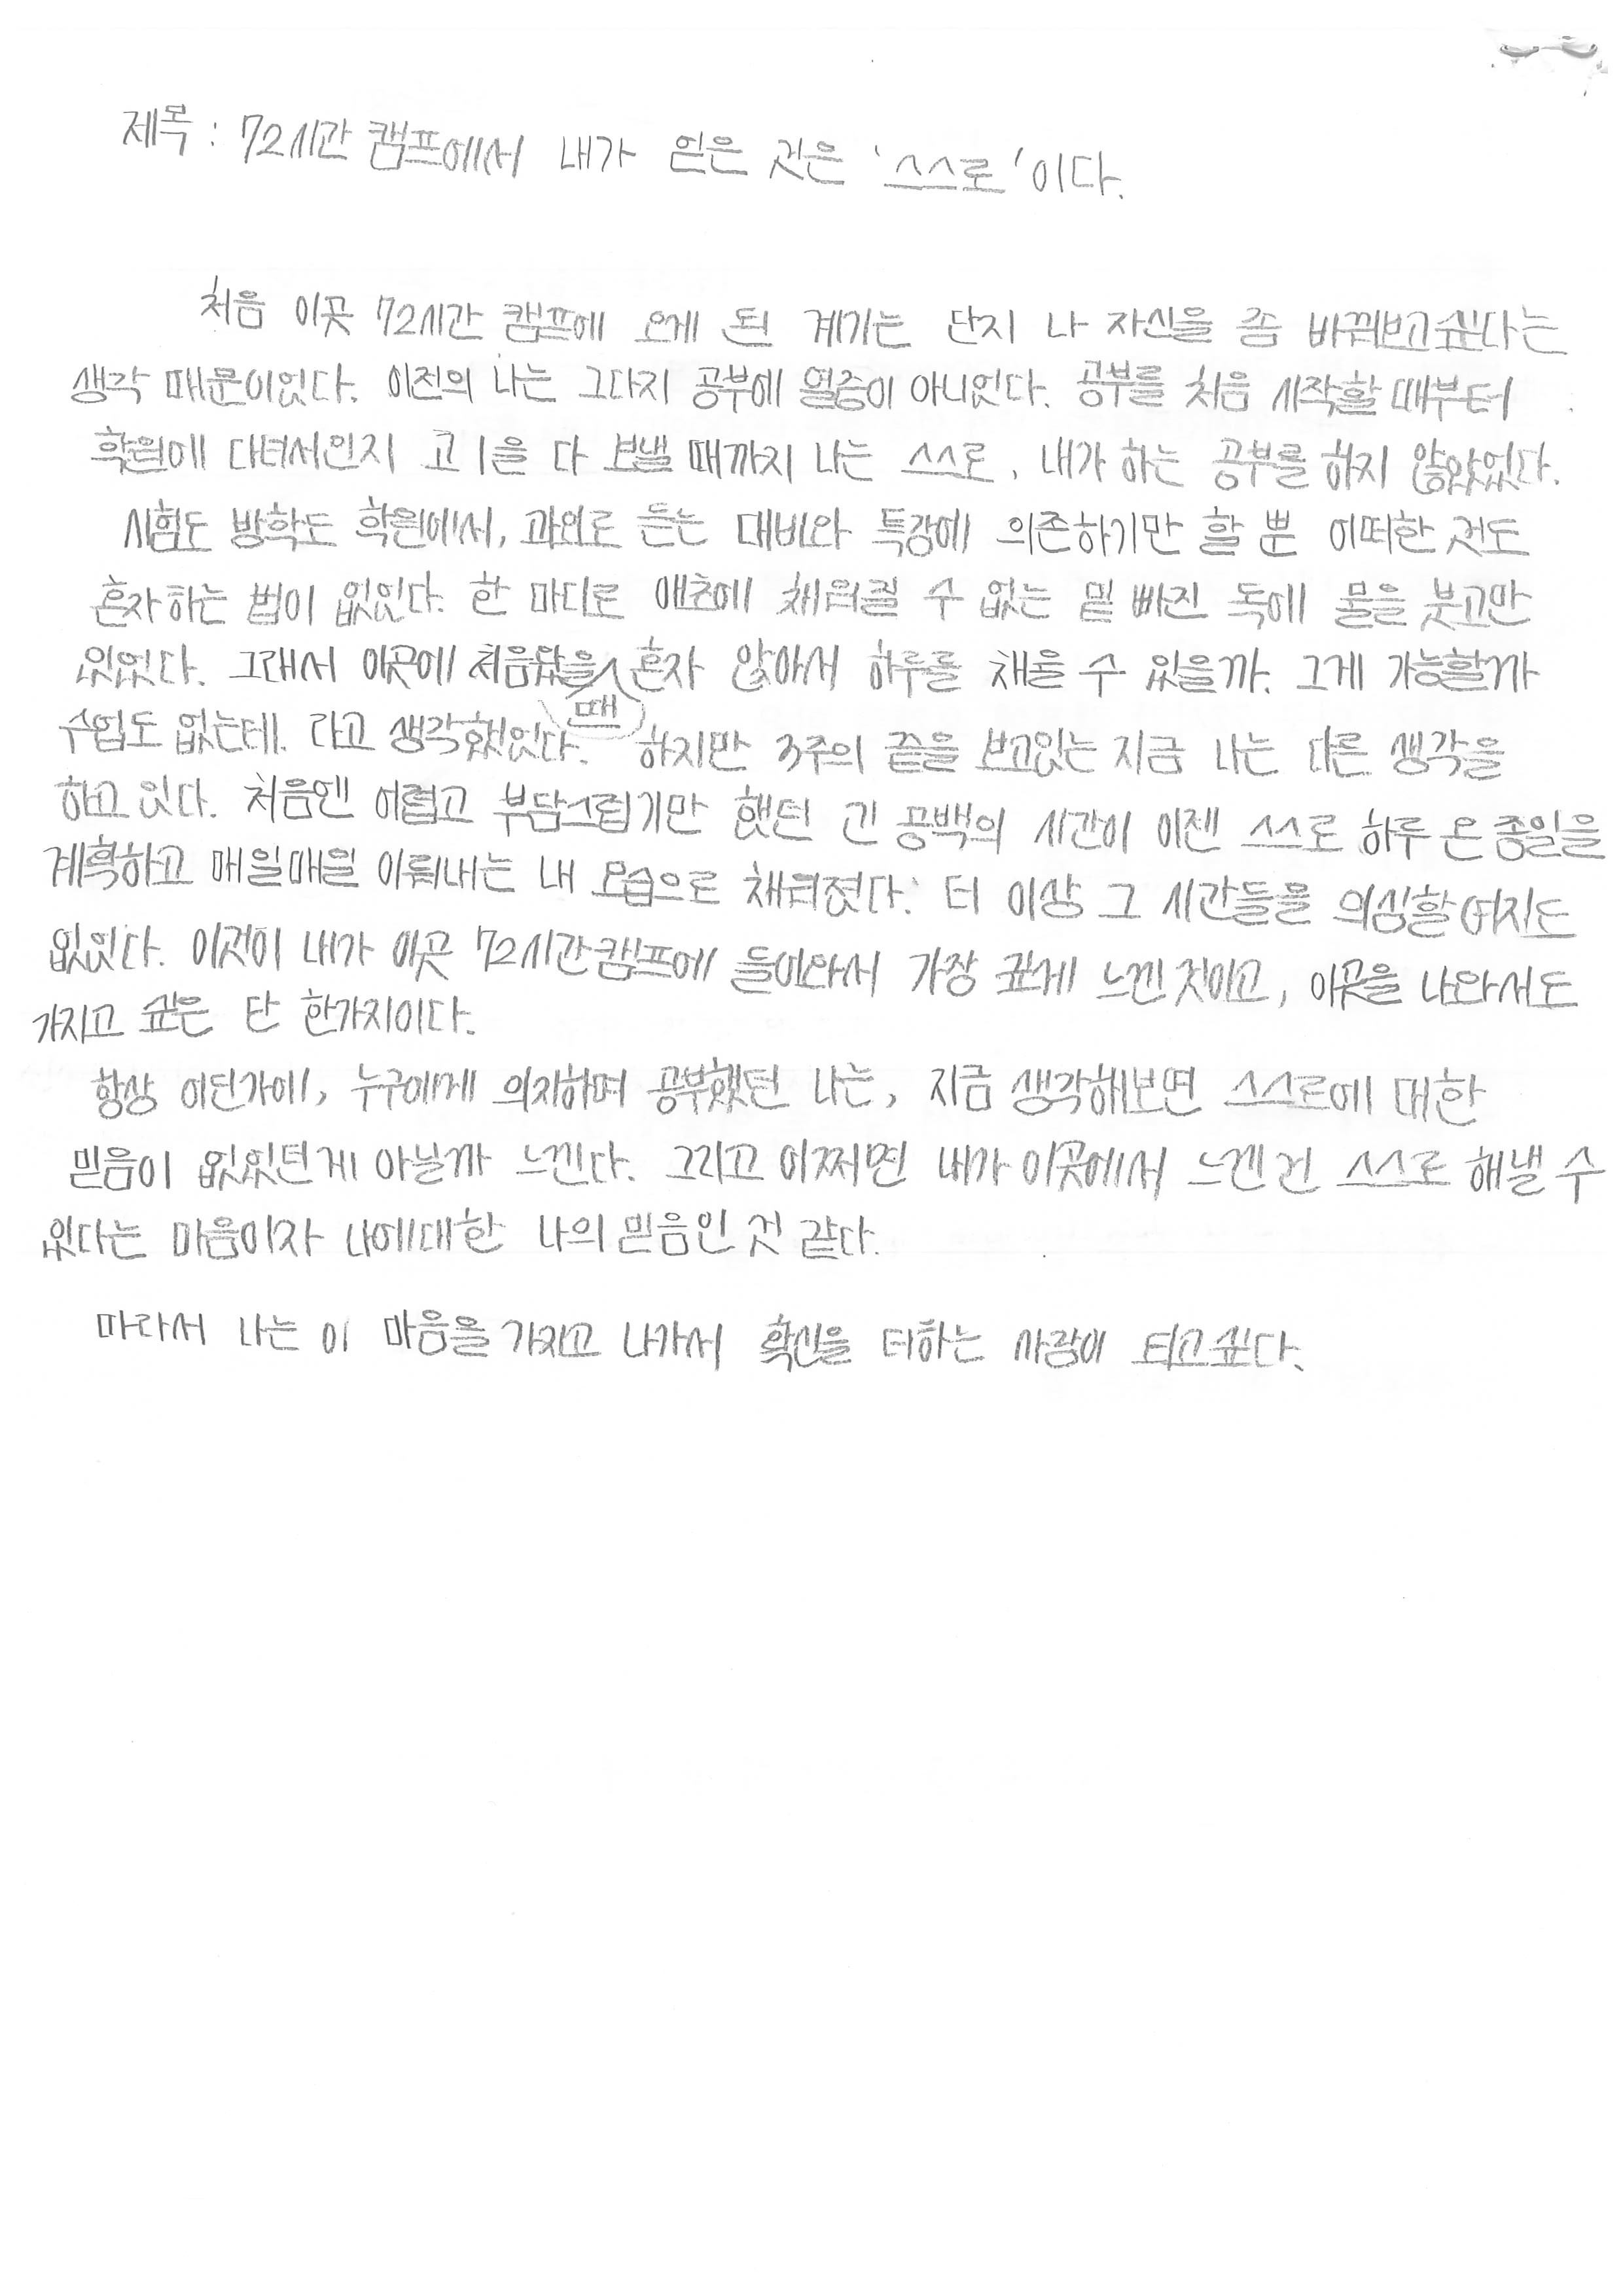 제목 : 72시간 캠프에서 내가 얻은 것은 '스스로'이다.
처음 이곳 72시간 캠프에 오게 된 계기는 단지 나 자신을 좀 바꿔보고싶다는
생각 때문이었다. 이전의 나는 그다지 공부에 열중이 아니었다. 공부를 처음 시작할 때부터
학원에 다녀서인지 고1을 다 보낼 때까지 나는 스스로, 내가 하는 공부를 하지 않았었다.
시험도 방학도 학원에서, 과외로 듣는 대비와 특강에 의존하기만 할 뿐 어떠한 것도
혼자 하는 법이 없었다. 한 마디로 애초에 채워질 수 없는 밑 빠진 독에 물을 붓고만
있었다. 그래서 이곳에 처음왔을 때 혼자 앉아서 하루를 채울 수 있을까. 그게 가능할까
수업도 없는데. 라고 생각했었다. 하지만 3주의 끝을 보고있는 지금 나는 다른 생각을
하고 있다. 처음엔 어렵고 부담스럽기만 했던 긴 공백의 시간이 이젠 스스로 하루 온종일을
계획하고 매일매일 이뤄내는 내 모습으로 채워졌다. 더 이상 그 시간들을 의심할 여지도
없었다. 이것이 내가 이곳 72시간캠프에 들어와서 가장 크게 느낀 것이고, 이곳을 나와서도
가지고 싶은 단 한가지이다.
항상 어딘가에, 누구에게 의지하며 공부했던 나는, 지금 생각해보면 스스로에 대한
믿음이 없었던게 아닐까 느낀다. 그리고 어쩌면 내가 이곳에서 느낀 건 스스로 해낼 수
있다는 마음이자 나에대한 나의 믿음인 것 같다.
따라서 나는 이 마음을 가지고 나가서 확신을 더하는 사람이 되고싶다.